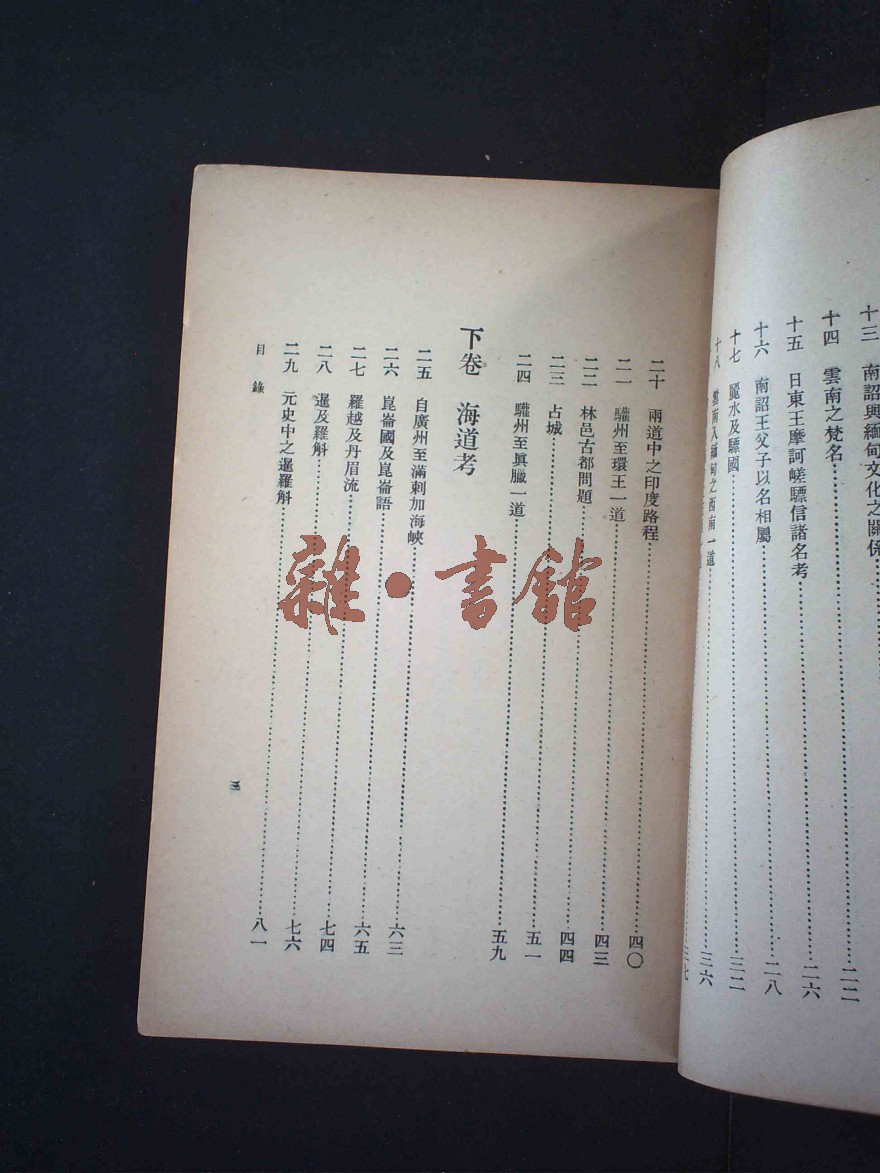 十三 南詔與緬甸文化之關係
十四 雲南之梵名 二二
十五 日東王摩訶嵯驃信諸名考 二六
十六 南詔王父子以名相屬 二八
十七 麗水及驃國 三二
十八 雲南入緬甸之西南一道 三六
三七
二十 兩道中之印度路程 四〇
二一 驩州至環王一道 四三
二二 林邑古都問題 四四
二三 占城 五一
二四 驩州至眞臘一道 五九
下卷 海道考
二五 自廣州至滿剌加海峽 六三
二六 崑崙國及崑崙語 六五
二七 羅越及丹眉流 七四
二八 暹及羅斛 七六
二九 元史中之暹羅斛 八一
目錄
三
雜·書館